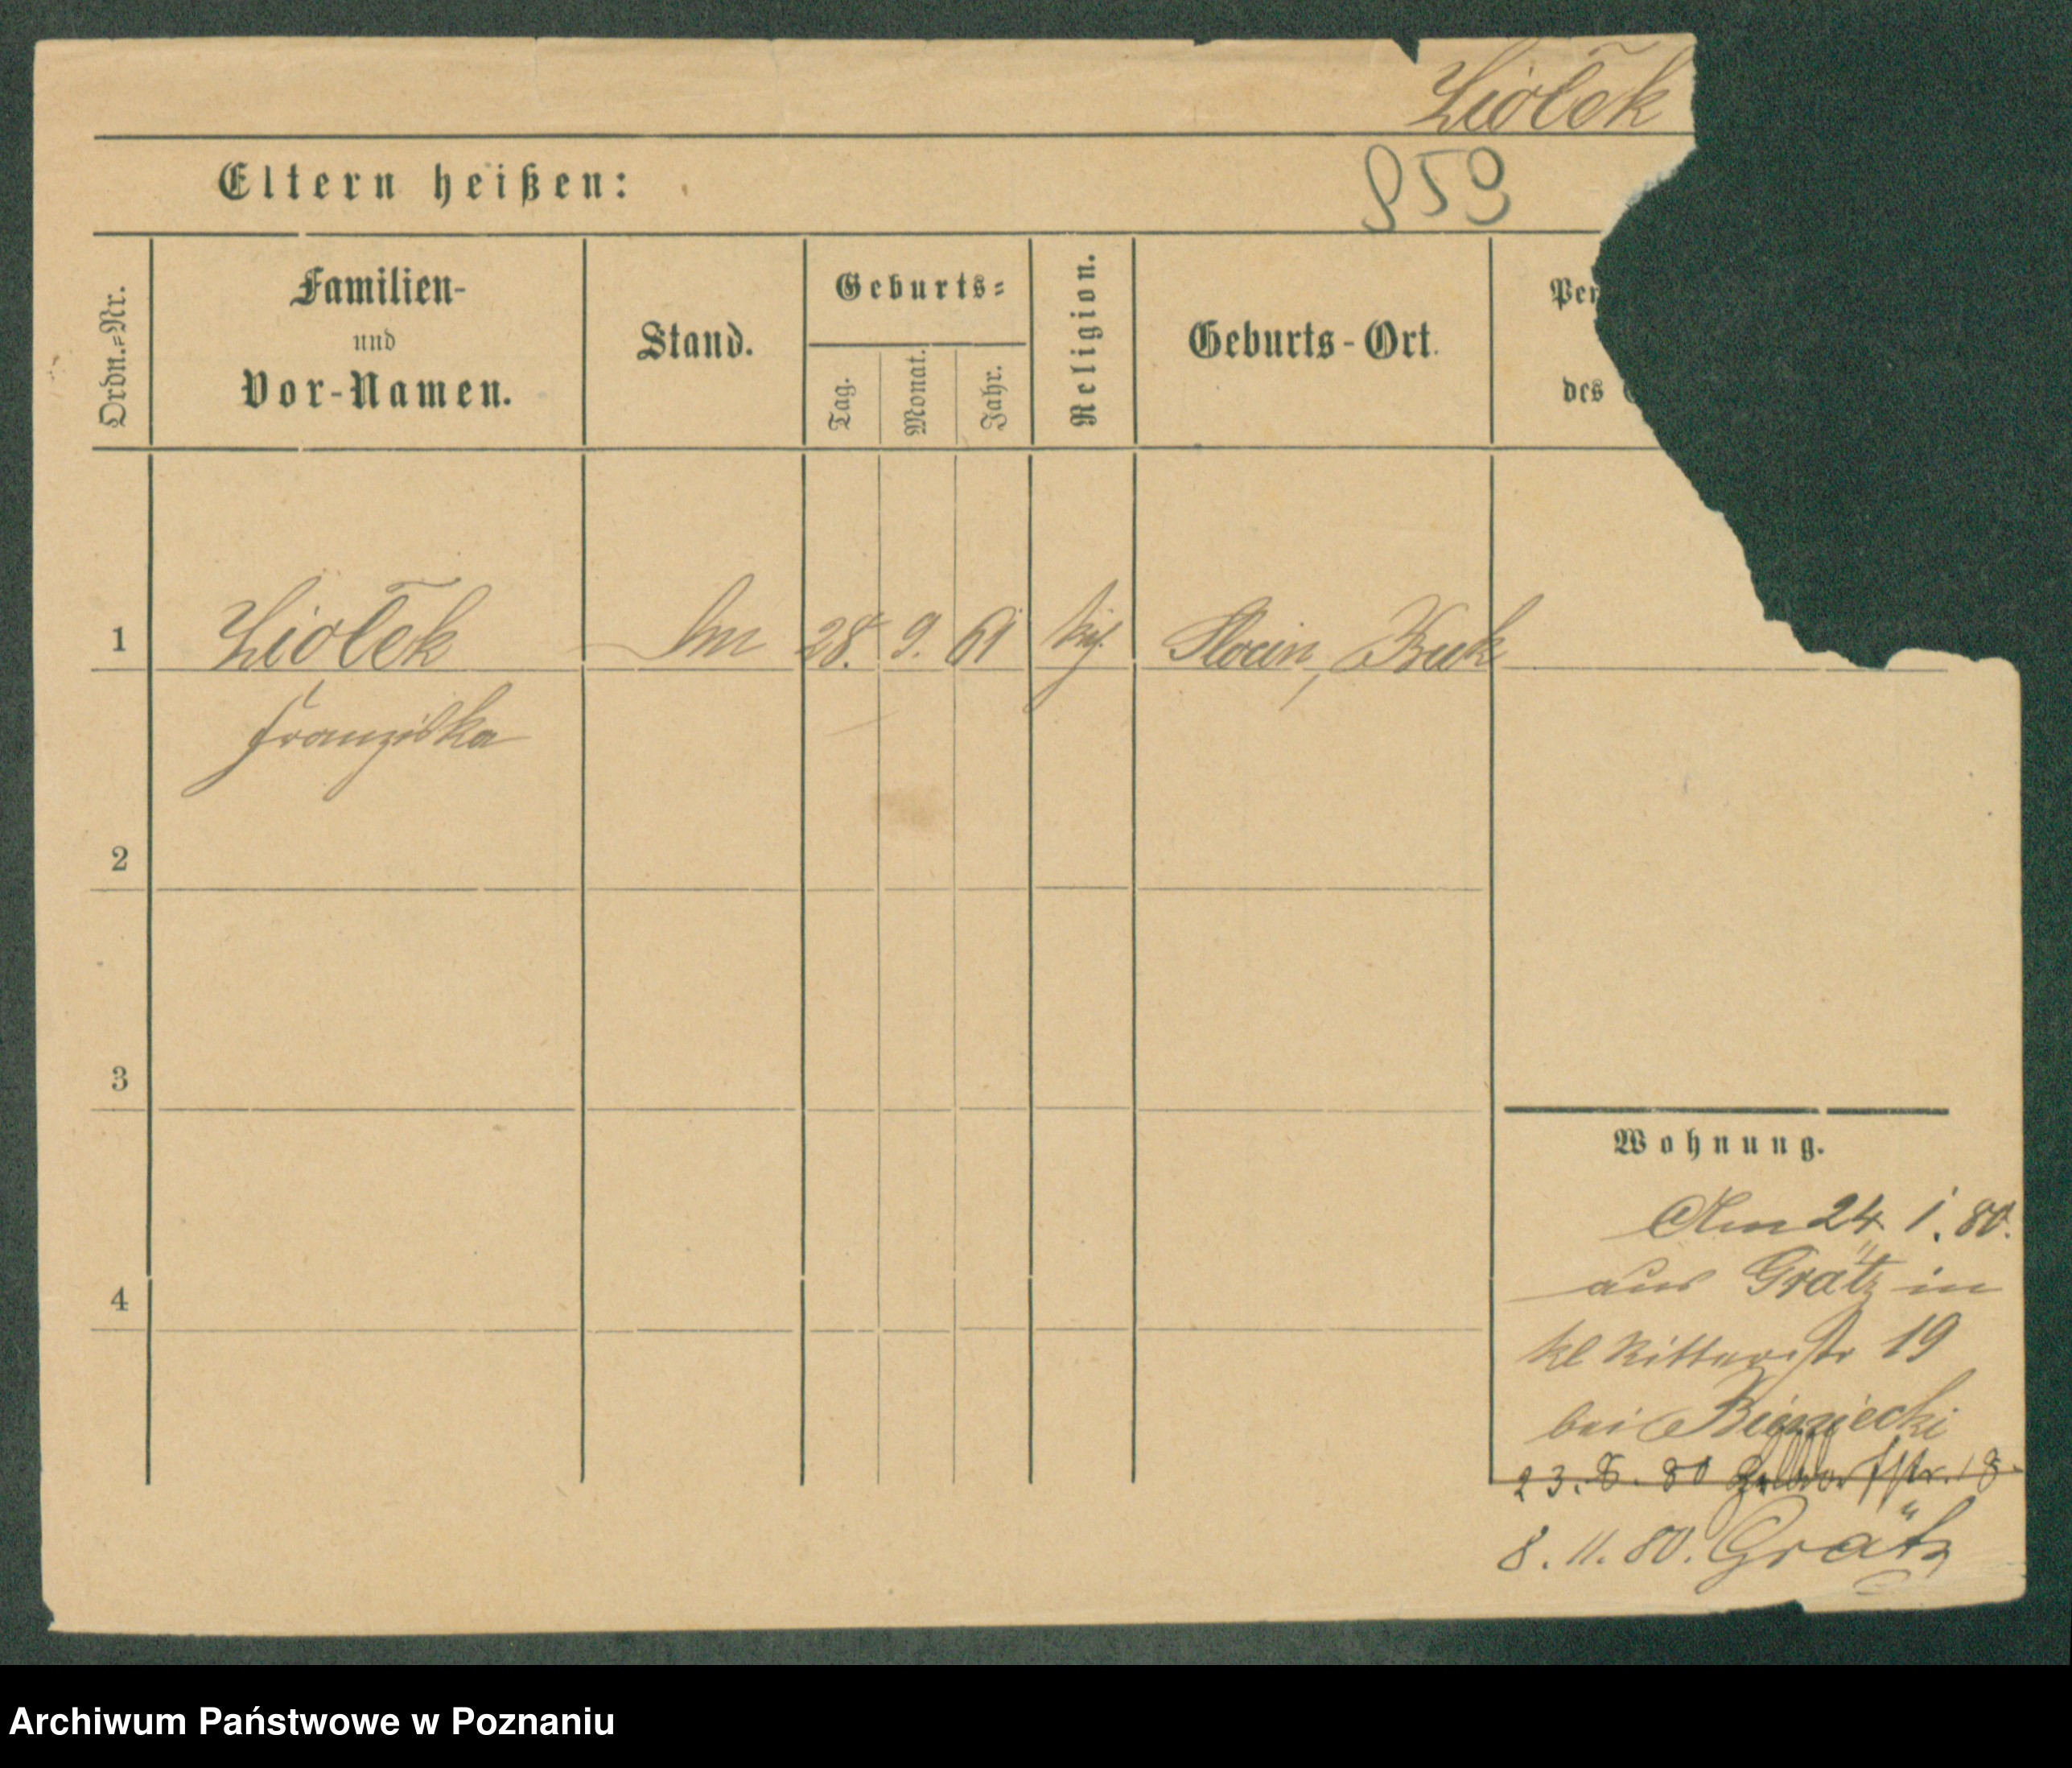 Ziołek
959
Eltern heißen:
Ordn.=Nr.
Familien-
und
Vor-Namen.
Stand.
Geburts=
Tag.
Monat.
Jahr.
Religion.
Geburts-Ort.
Per
des
1
Ziołek
28. 9. 61
Słocin, Buk
Franziska
2
3
4
Wohnung.
Am 24. 1. 80.
aus Grätz in
kl Ritterstr 19
bei Bieniecki
23. 8. 80 str. 18
8. 11. 80. Grätz
Archiwum Państwowe w Poznaniu